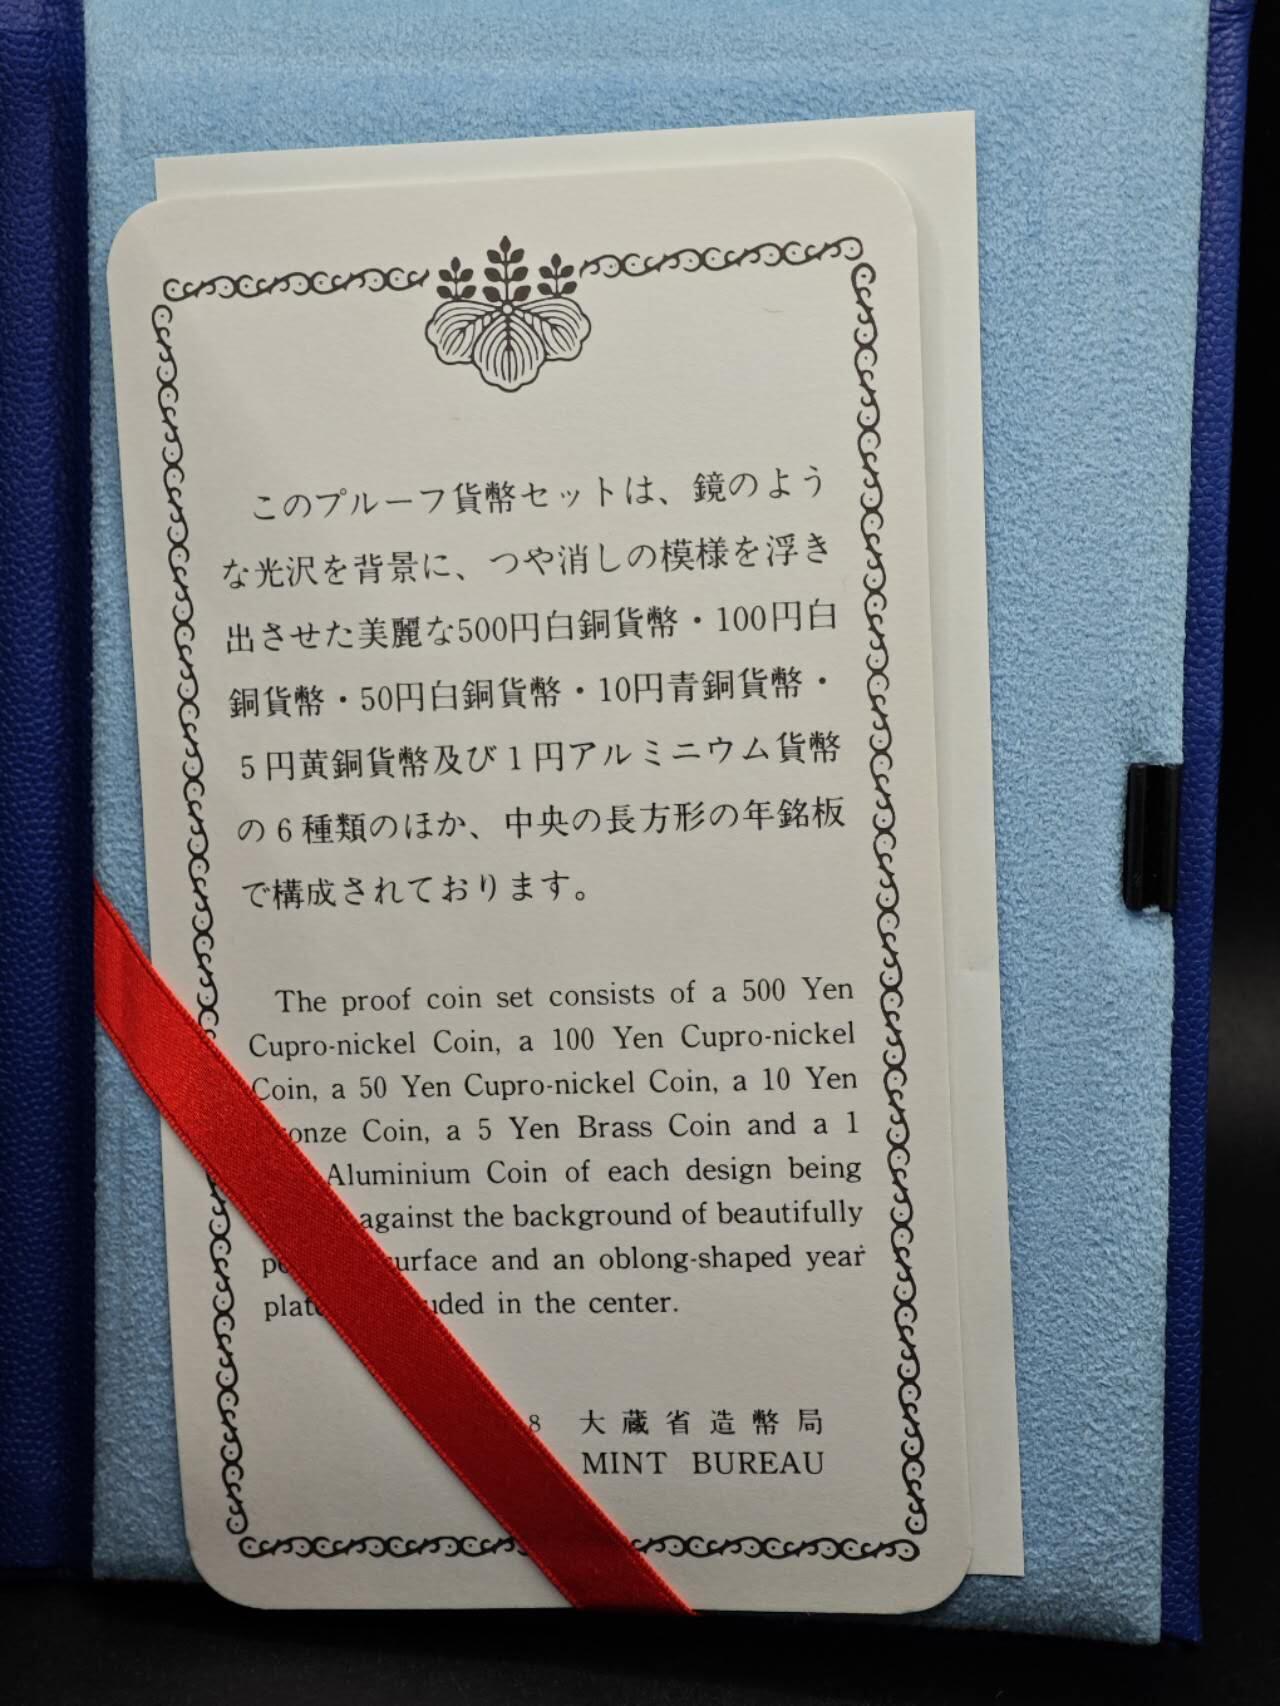 このプルーフ貨幣セットは、鏡のよう
な光沢を背景に、つや消しの模様を浮き
出させた美麗な500円白銅貨幣・100円白
銅貨幣・50円白銅貨幣・10円青銅貨幣・
5円黄銅貨幣及び1円アルミニウム貨幣
の6種類のほか、中央の長方形の年銘板
で構成されております。
The proof coin set consists of a 500 Yen
Cupro-nickel Coin, a 100 Yen Cupro-nickel
Coin, a 50 Yen Cupro-nickel Coin, a 10 Yen
Coin, a 5 Yen Brass Coin and a 1
Aluminium Coin of each design being
against the background of beautifully
and an oblong-shaped year
in the center.
8 大蔵省造幣局
MINT BUREAU